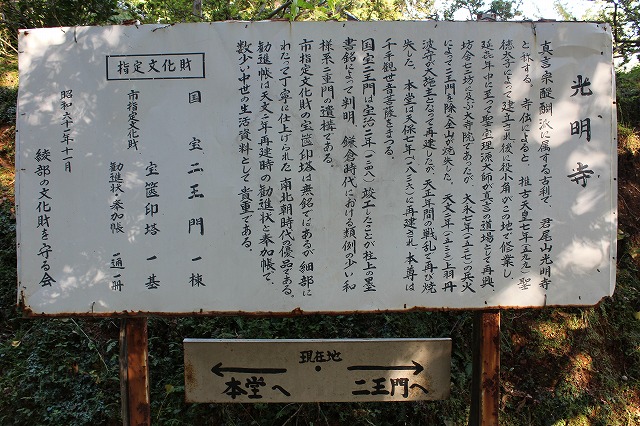 光明寺
真言宗醍醐派に属する古刹で、君尾山光明寺
と称する。寺伝によると、推古天皇七年(五九九)聖
徳太子によって建立され、後に役小角がこの地で修業し、
延喜年中に至って聖宝理源大師が真言の道場として再興、
坊舎七二坊に及ぶ大寺院であったが、大永七年(一五二七)の兵火
によって二王門を除く全山が焼失した。天文二年(一五三三)上羽丹
波守が大施主となって再建したが、天正年間の戦乱で再び焼
失した。本堂は天保七年(一八三六)に再建され、本尊は
千手観世音菩薩をまつる。
国宝二王門は宝治二年(一二四八)竣工したことが柱上の墨
書銘よって判明、鎌倉時代における類例の少い和
様系二重門の遺構である。
市指定文化財の宝篋印塔は無銘ではあるが細部に
わたって丁寧に仕上げられた南北朝時代の優品である。
勧進帳は天文二年再建時の勧進状と奉加帳で、
数少い中世の生活資料として貴重である。
指定文化財
国宝 二王門 一棟
市指定文化財 宝篋印塔 一基
勧進状・奉加帳 一通一冊
昭和六十一年十一月
綾部の文化財を守る会
現在地
本堂へ
二王門へ